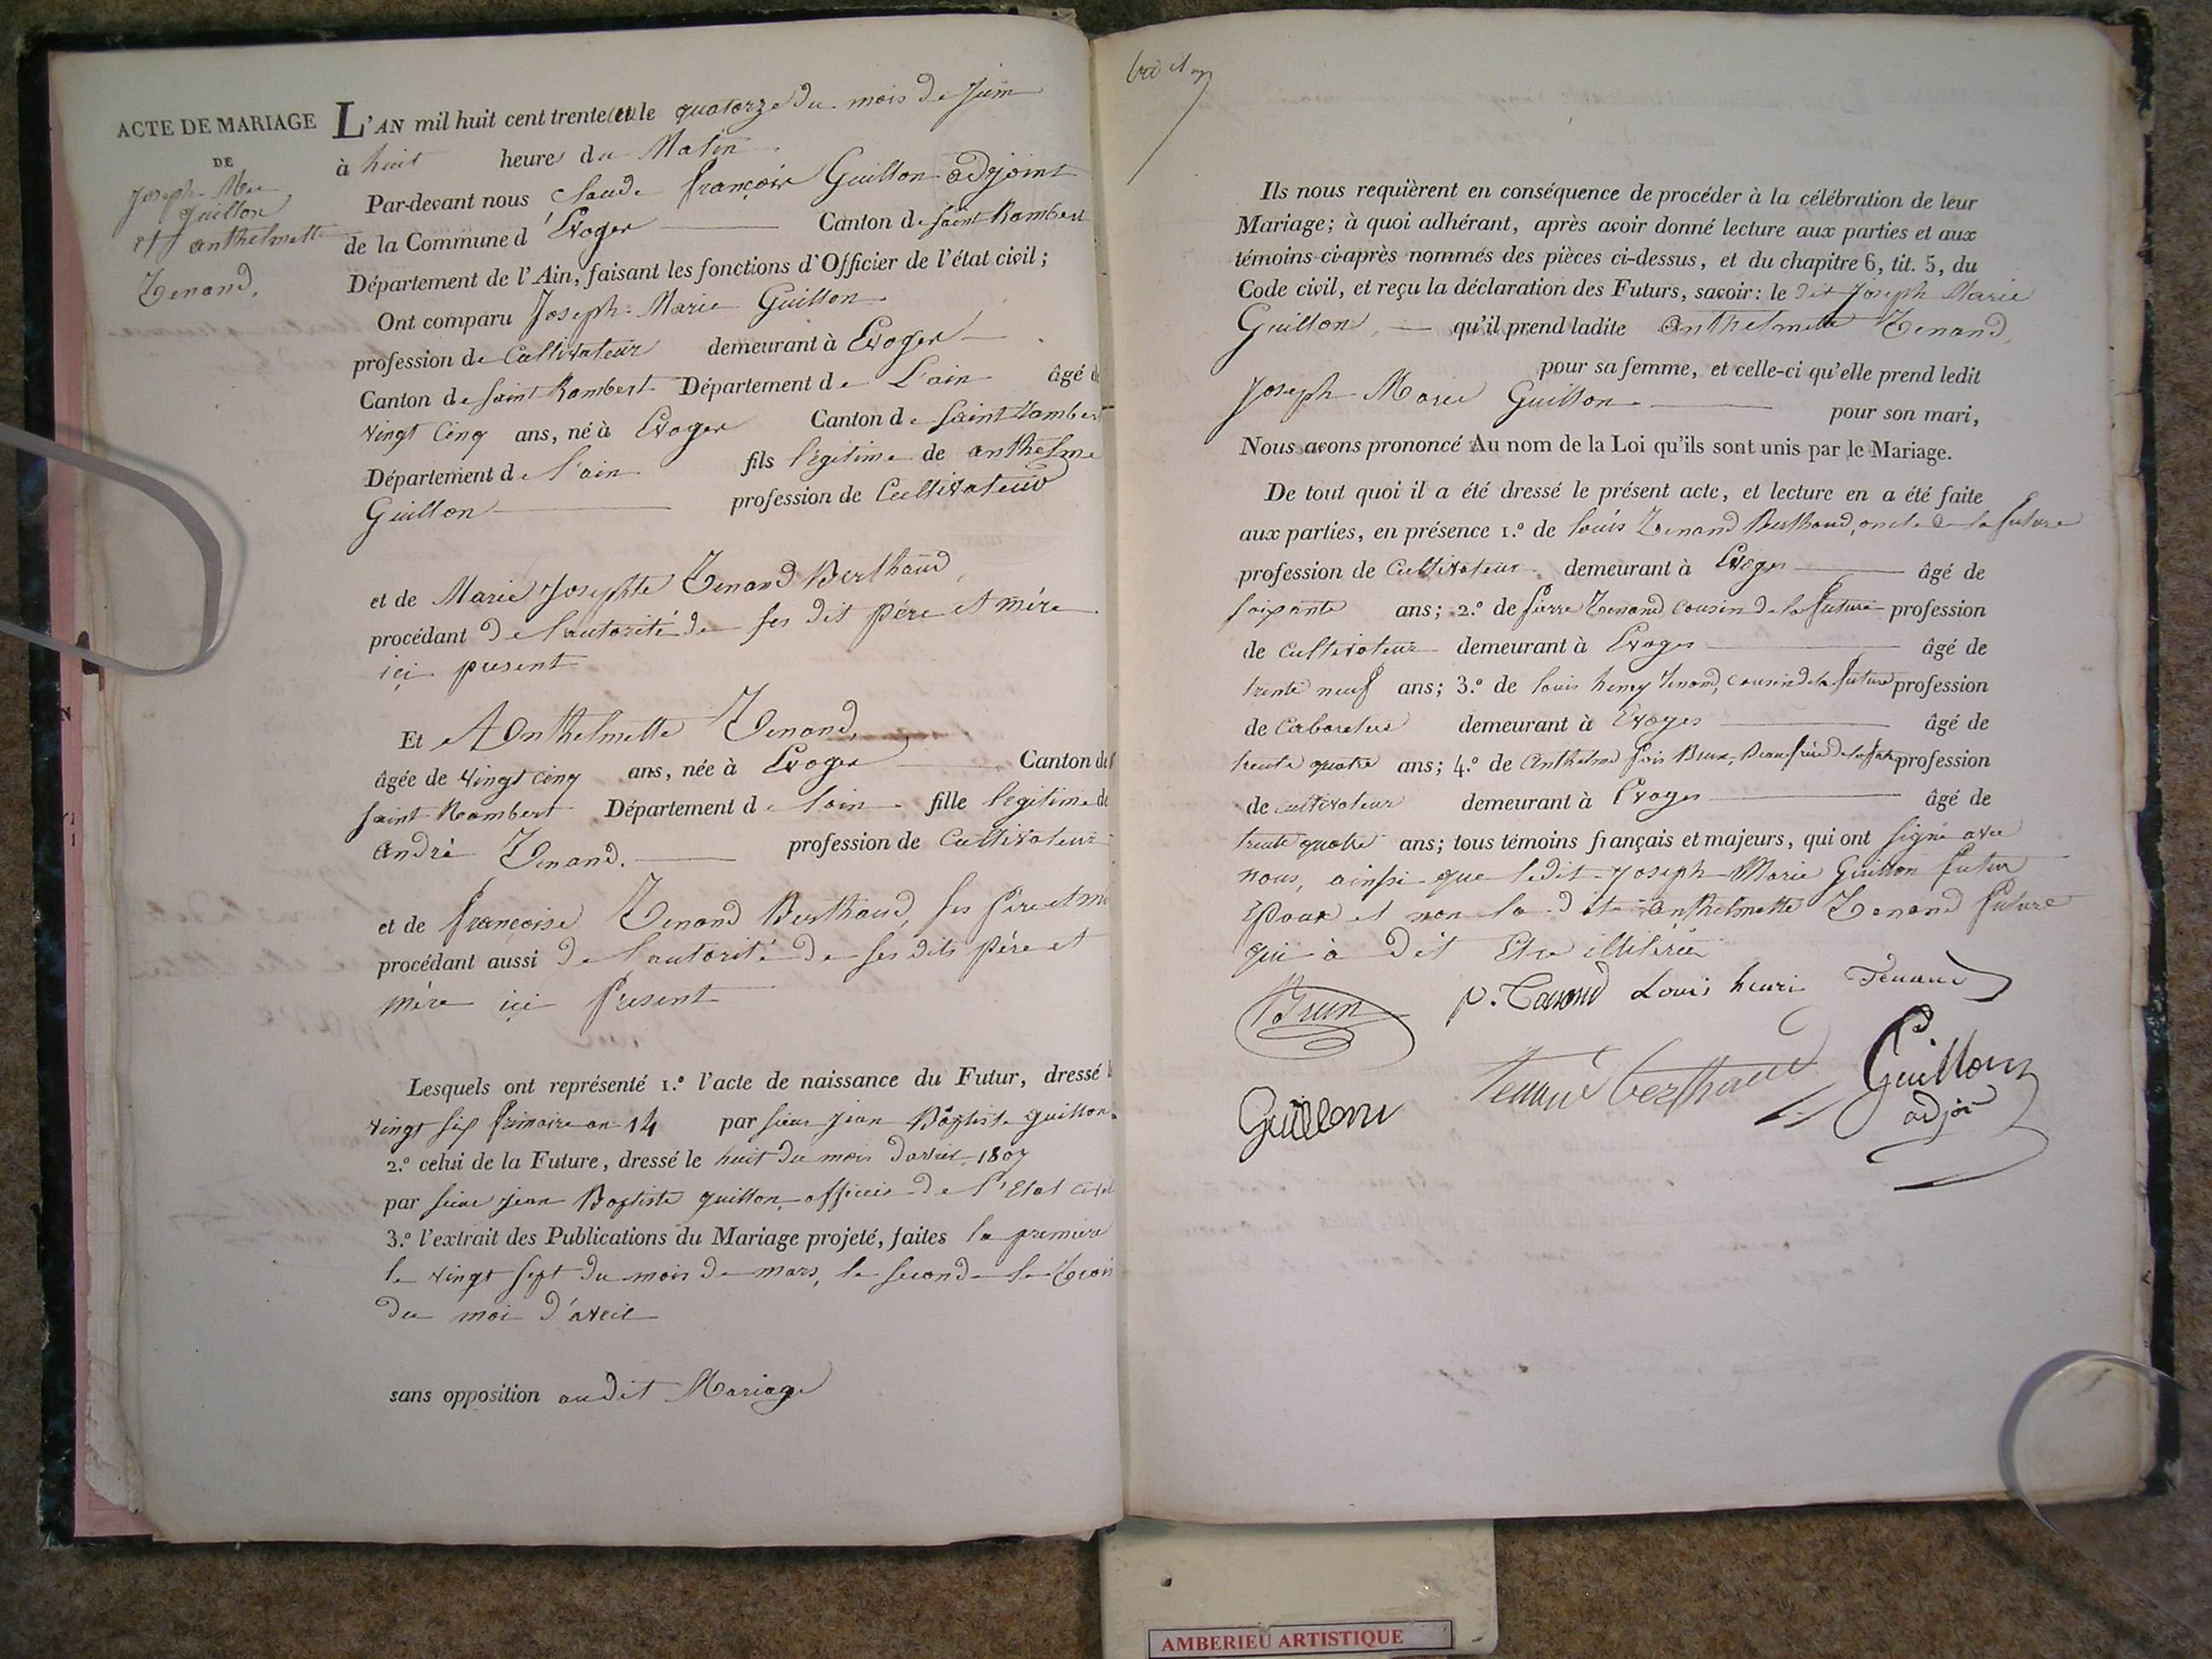 ACTE DE MARIAGE
DE
Joseph Mie
guillon
et anthelmette
Tenand,
L'AN mil huit cent trente un le quatorze du mois de Juin
à huit heures du Matin
Par-devant nous Claude françois Guillon adjoint
de la Commune d'Evoges Canton de Saint Rambert
Département de l'Ain, faisant les fonctions d'Officier de l'état civil;
Ont comparu Joseph-Marie Guillon
profession de Cultivateur demeurant à Evoges
Canton de Saint Rambert Département de L'ain âgé de
vingt Cinq ans, né à Evoges Canton de Saint Rambert
Département de l'ain fils légitime de anthelme
Guillon profession de Cultivateur
et de Marie Josephte Tenand Berthaud,
procédant de l'autorité de ses dit père et mère
içi present
Et Anthelmette Tenand,
âgée de vingt cinq ans, née à Evoges Canton de
Saint Rambert Département de l'ain fille legitime de
André Tenand. profession de Cultivateur
et de françoise Tenand Berthaud, ses Père et
procédant aussi de l'autorité de ses dits Père et
mère içi present
Lesquels ont représenté 1.º l'acte de naissance du Futur, dressé
vingt six frimaire an 14 par sieur jean Baptiste guillon
2.º celui de la Future, dressé le huit du mois d'avril 1807
par sieur jean Baptiste guillon, officier de l'Etat civil
3.º l'extrait des Publications du Mariage projeté, faites la premiere
le vingt sept du mois de mars, la seconde le Trois
du moi d'avril
sans opposition audit Mariage
Ils nous requièrent en conséquence de procéder à la célébration de leur
Mariage; à quoi adhérant, après avoir donné lecture aux parties et aux
témoins ci-après nommés des pièces ci-dessus, et du chapitre 6, tit. 5, du
Code civil, et reçu la déclaration des Futurs, savoir: le dit Joseph Marie
Guillon, qu'il prend ladite Anthelmette Tenand,
pour sa femme, et celle-ci qu'elle prend ledit
Joseph Marie Guillon pour son mari,
Nous avons prononcé Au nom de la Loi qu'ils sont unis par le Mariage.
De tout quoi il a été dressé le présent acte, et lecture en a été faite
aux parties, en présence 1.º de louis Tenand Berthaud, oncle de la future
profession de Cultivateur demeurant à Evoges âgé de
soixante ans; 2.º de pierre Tenand cousin de la future profession
de cultivateur demeurant à Evoges âgé de
trente neuf ans; 3.º de louis henry Tenand, cousin de la future profession
de Cabaretier demeurant à Evoges âgé de
trente quatre ans; 4.º de Anthelme fois Brun, Beau frère de la future profession
de cultivateur demeurant à Evoges âgé de
trente quatre ans; tous témoins français et majeurs, qui ont signé avec
nous, ainsi que ledit Joseph Marie Guillon futur
Epoux et non la dite anthelmette Tenand future
qui à dit Etre illiterée
Brun p. Tenand Louis henri Tenand
Tenand berthaud Guillon
Guillon adjoi
AMBERIEU ARTISTIQUE